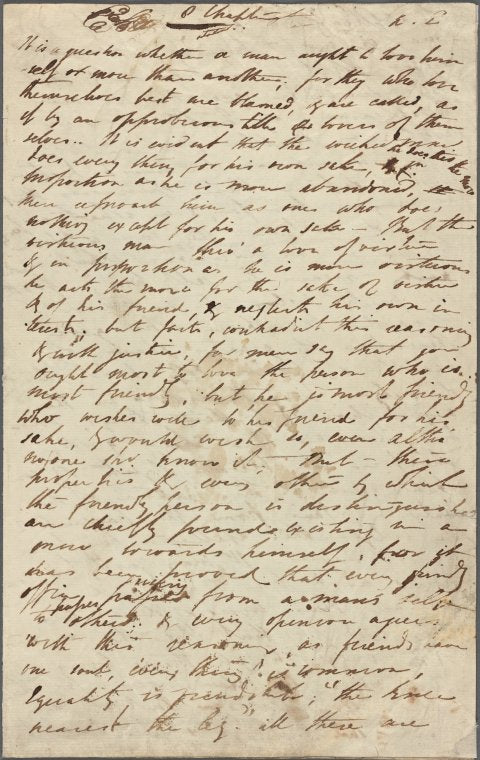 8 Chapter
It is a question whether a man ought to love him
self or more than another, for they who love
themselves best are blamed, & are called, as
if by an opprobrious title lovers of them
selves.. It is evident that the wicked man
does every thing for his own sake, & in
proportion as he is more abandoned
men reproach him as one who does
nothing except for his own sake – But the
virtuous man thro' a love of virtue
& in proportion as he is more virtuous
he acts the more for the sake of virtue
& of his friend, & neglects his own in
terest; but facts, contradict this reasoning
& with justice, for men say that you
ought most to love the person who is
most friendly, but, he is most friendly
who wishes well to his friend for his
sake, & would wish so, even altho
no one shd know it, – But – these
properties & every other by which
the friendly person is distinguished
are chiefly found existing in a
man towards himself, for it
has been proved that every friendly
office passes from a man's self
to others. & every opinion agrees
with this reasoning, as friends have
one soul, every thing is common,
equality is friendship, "the knee
nearest the leg" all these are